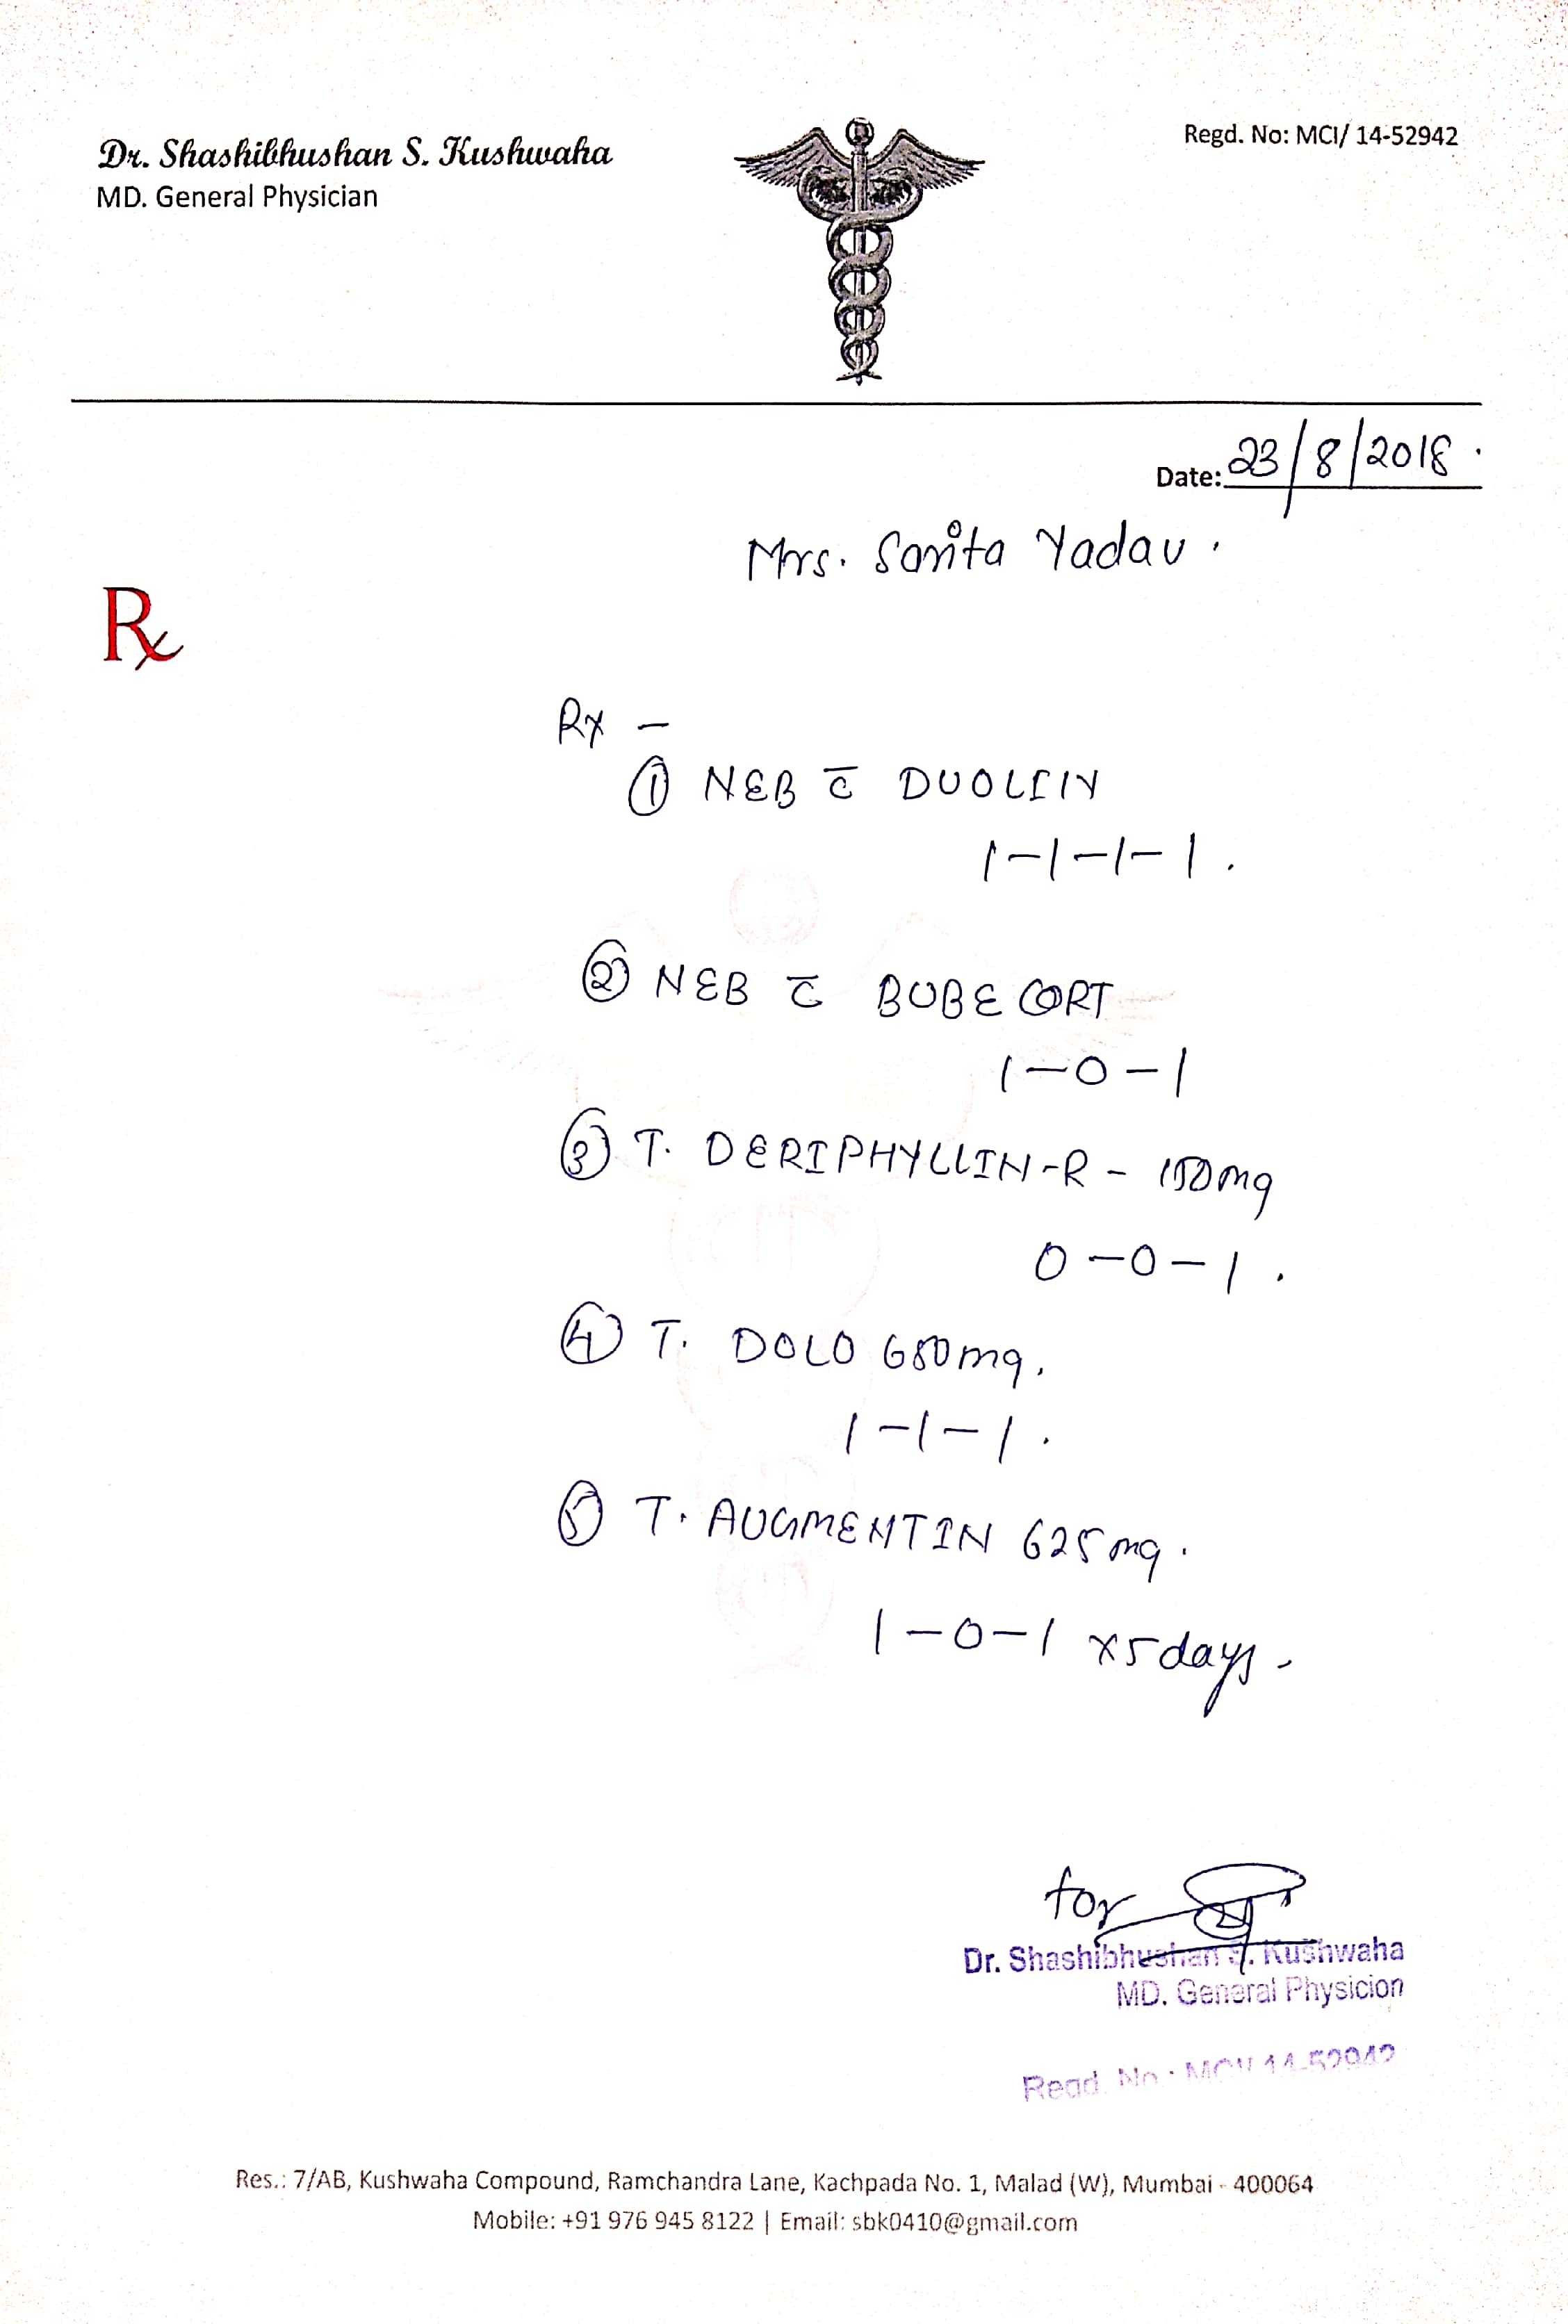 Dr. Shashibhushan S. Kushwaha
MD. General Physician
Regd. No: MCI/ 14-52942
Date: 23/8/2018.
Mrs. Sarita Yadav.
Rx
Rx -
① NEB c̅ DUOLIN
1-1-1-1.
② NEB c̅ BUBECORT
1-0-1
③ T. DERIPHYLLIN-R - 150mg
0-0-1.
④ T. DOLO 650mg.
1-1-1.
⑤ T. AUGMENTIN 625mg.
1-0-1 x5days.
for
Dr. Shashibhushan S. Kushwaha
MD. General Physicion
Regd. No: MCI/ 14-52942
Res.: 7/AB, Kushwaha Compound, Ramchandra Lane, Kachpada No. 1, Malad (W), Mumbai - 400064
Mobile: +91 976 945 8122 | Email: sbk0410@gmail.com